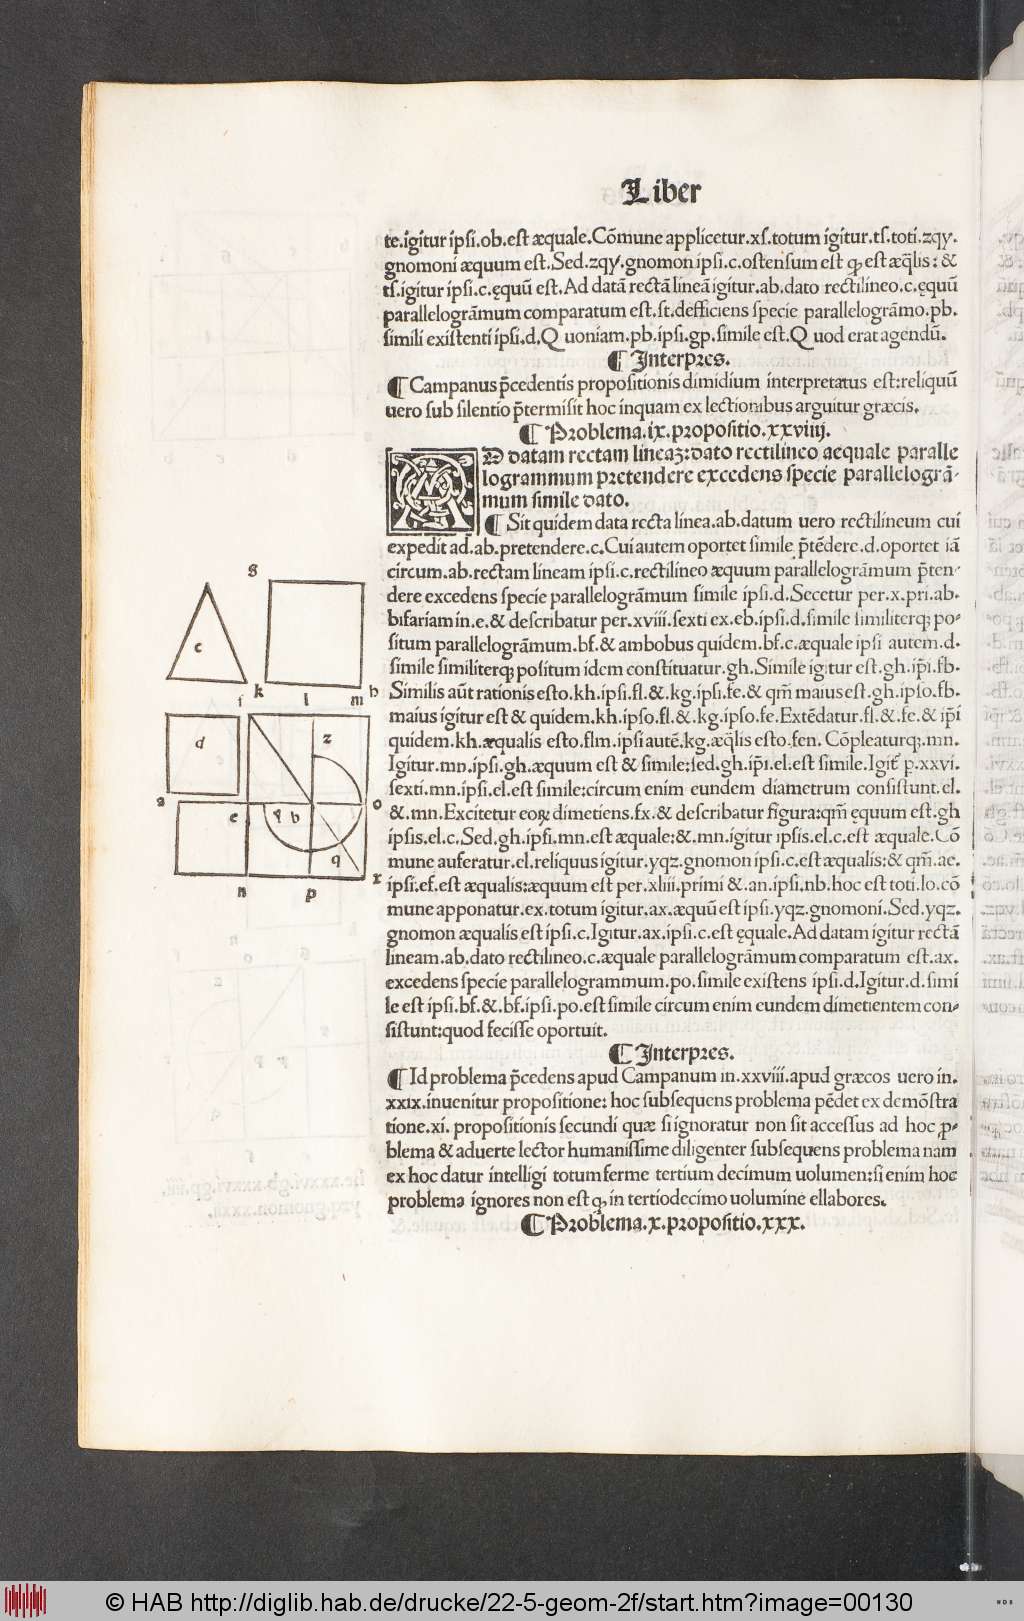 Liber
te.igitur ipsi.ob.est æquale.Cõmune applicetur.xs.totum igitur.ts.toti.zqy.
gnomoni æquum est.Sed.zqy.gnomon ipsi.c.ostensum est ꝙ est æq̃lis: &
ts.igitur ipsi.c.ęquũ est.Ad datã rectã lineã igitur.ab.dato rectilineo.c.ęquũ
parallelogrãmum comparatum est.st.defficiens specie parallelogrãmo.pb.
simili existenti ipsi.d.Quoniam.pb.ipsi.gp.simile est.Quod erat agendũ.
¶ Interpres.
¶ Campanus p̃cedentis propositionis dimidium interpretatus est:reliquũ
uero sub silentio p̃termisit hoc inquam ex lectionibus arguitur græcis.
¶ Problema.ix.propositio.xxviiij.
AD datam rectam lineaʒ:dato rectilineo aequale paralle
logrammum pretendere excedens specie parallelogrã-
mum simile dato.
¶ Sit quidem data recta linea.ab.datum uero rectilineum cui
expedit ad.ab.pretendere.c.Cui autem oportet simile p̃tẽdere.d.oportet iã
circum.ab.rectam lineam ipsi.c.rectilineo æquum parallelogrãmum p̃ten-
dere excedens specie parallelogrãmum simile ipsi.d.Secetur per.x.pri.ab.
bifariam in.e.& describatur per.xviii.sexti ex.eb.ipsi.d.simile similiterq; po-
situm parallelogrãmum.bf.& ambobus quidem.bf.c.æquale ipsi autem.d.
simile similiterq; positum idem constituatur.gh.Simile igitur est.gh.ip̃i.fb.
Similis aũt rationis esto.kh.ipsi.fl.&.kg.ipsi.fe.& qm̃ maius est.gh.ipso.fb.
maius igitur est & quidem.kh.ipso.fl.&.kg.ipso.fe.Extẽdatur.fl.& .fe.& ip̃i
quidem.kh.æqualis esto.flm.ipsi autẽ.kg.æq̃lis esto.fen. Cõpleaturq;.mn.
Igitur.mn.ipsi.gh.æquum est & simile:sed.gh.ip̃i.el.est simile.Igit̃ p.xxvi.
sexti.mn.ipsi.el.est simile:circum enim eundem diametrum consistunt.el.
&.mn.Excitetur eoꝝ dimetiens.fx.& describatur figura:qm̃ ęquum est.gh
ipsis.el.c.Sed.gh.ipsi.mn.est æquale:&.mn.igitur ipsis.el.c.est æquale.Cõ
mune auferatur.el.reliquus igitur.yqz.gnomon ipsi.c.est æqualis:& qm̃.ae.
ipsi.ef.est æqualis:æquum est per.xliii.primi &.an.ipsi.nb.hoc est toti.lo.cõ
mune apponatur.ex.totum igitur.ax.æquũ est ipsi.yqz.gnomoni.Sed.yqz.
gnomon æqualis est ipsi.c.Igitur.ax.ipsi.c.est ęquale.Ad datam igitur rectã
lineam.ab.dato rectilineo.c.æquale parallelogrãmum comparatum est.ax.
excedens specie parallelogrammum.po.simile existens ipsi.d.Igitur.d.simi
le est ipsi.bf.&.bf.ipsi.po.est simile circum enim eundem dimetientem con-
sistunt:quod fecisse oportuit.
¶ Interpres.
¶ Id problema p̃cedens apud Campanum in.xxviii.apud græcos uero in.
xxix.inuenitur propositione: hoc subsequens problema pẽdet ex demõstra
tione.xi. propositionis secundi quæ si ignoratur non sit accessus ad hoc ꝓ-
blema & aduerte lector humanissime diligenter subsequens problema nam
ex hoc datur intelligi totum ferme tertium decimum uolumen:si enim hoc
problema ignores non est ꝙ in tertiodecimo uolumine ellabores.
¶ Problema.x.propositio.xxx.
g
c
i k l m h
d z
a e y b o
q
n p x
© HAB http://diglib.hab.de/drucke/22-5-geom-2f/start.htm?image=00130